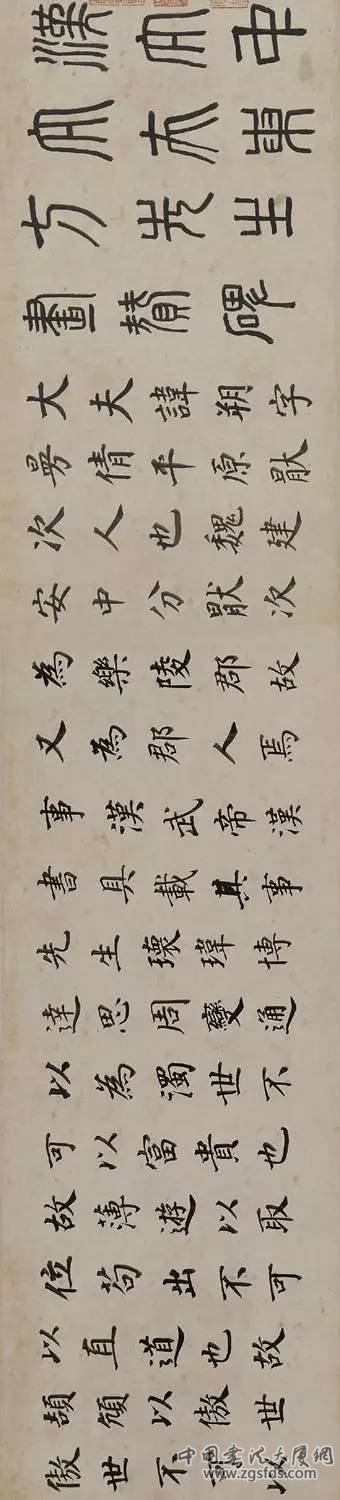 漢大中
大夫東
方先生
畫贊碑
大夫諱朔字
曼倩平原厭
次人也魏建
安中分厭次
為樂陵郡故
又為郡人焉
事漢武帝漢
書具載其事
先生瓌瑋博
達思周變通
以為濁世不
可以富貴也
故薄遊以取
位苟出不可
以直道也故
頡頏以傲世
傲世不可以
www.zgsfds.com